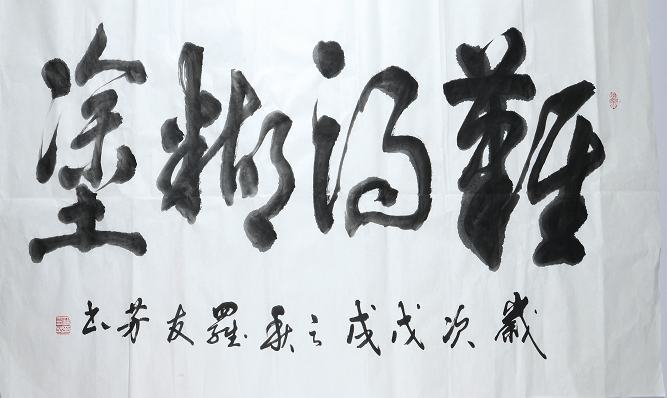 難得糊塗
歲次戊戌之秋羅友芳书